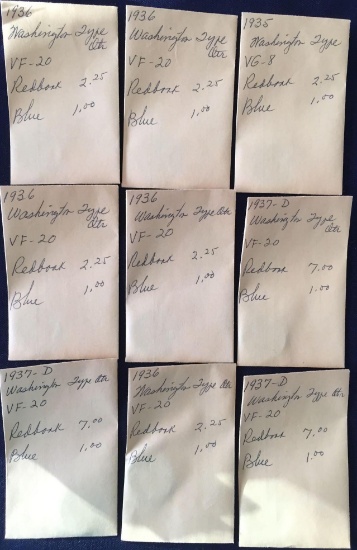 1936
Washington Type
Qtr
VF-20
Redbook 2.25
Blue 1.00
1936
Washington Type
Qtr
VF-20
Redbook 2.25
Blue 1.00
1935
Washington Type
VG-8
Redbook 2.25
Blue 1.00
1936
Washington Type
Qtr
VF-20
Redbook 2.25
Blue 1.00
1936
Washington Type Qtr
VF-20
Redbook 2.25
Blue 1.00
1937-D
Washington Type
Qtr
VF-20
Redbook 7.00
Blue 1.00
1937-D
Washington Type Qtr
VF-20
Redbook 7.00
Blue 1.00
1936
Washington Type Qtr
VF-20
Redbook 2.25
Blue 1.00
1937-D
Washington Type Qtr
VF-20
Redbook 7.00
Blue 1.00